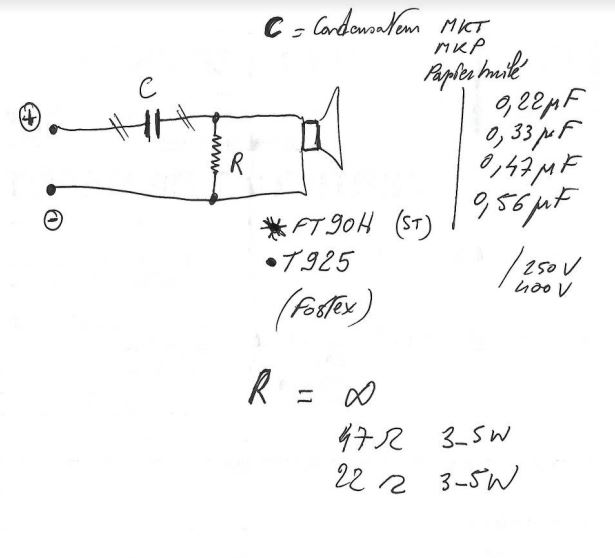 C = Condensateur MKT
MKP
Papier huilé
0,22 µF
0,33 µF
0,47 µF
0,56 µF
/ 250 V
400 V
+
C
R
-
* FT90H (ST)
• T925
(Fostex)
R = ∞
47 Ω 3-5W
22 Ω 3-5W